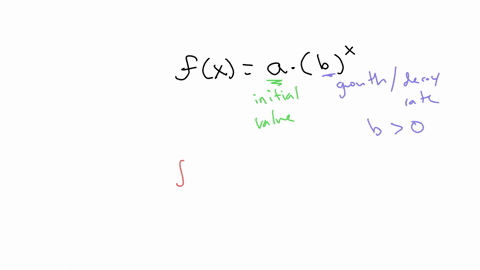 f(x) = a·(b)^x
initial
value
growth/decay
rate
b > 0
∫